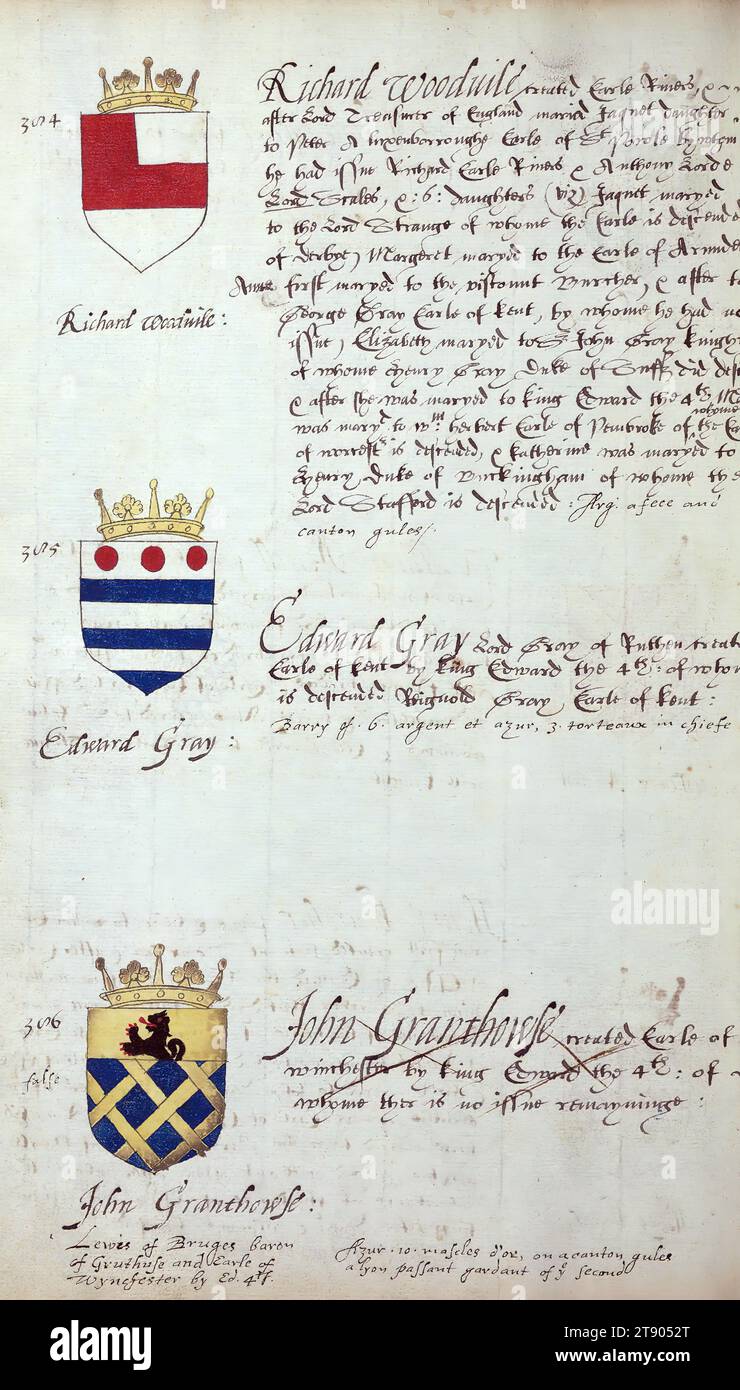 384
Richard Woodvile created Earle Rivers, &
after Lord Treasurer of England maried Jaquet daughter
to Peter A luxenborroughe Earle of St Paole by whom
he had issue Richard Earle Rivers & Anthony Lord
Lord Scales, & :6: daughters (viz) Jaquet maryed
to the Lord Strange of whome the Earle is descended
of derbye, Margeret maryed to the Earle of Arundel
Anne first maryed to the viscount Burcher, & after to
George Gray Earle of kent, by whome he had no
issue, Elizabeth maryed to Sr John Gray knight
of whome Henry Gray Duke of Suff: did desc
& after she was maryed to king Edward the 4th. Ma
was maryd to Wm herbert Earle of Pembroke of whome the Ea
of worcestr is descended, & katherine was maryed to
Henry Duke of Buckingham of whome the
Lord Stafford is descended : Arg. a fece and
canton gules/.
Richard Woodvile :
385
Edward Gray Lord Gray of Ruthen create
Earle of kent by king Edward the 4th: of who
is descended Rignold Gray, Earle of kent :
Barry of .6. argent et azur, 3. torteaux in chiefe
Edward Gray :
386
false
John Granthowse created Earle of
winchester by king Edward the 4th: of
whome ther is no issue remayninge :
John Granthowse :
Lewis of Bruges baron
of Gruthuse and Earle of
Wynchester by Ed. 4t.
Azur .10. mascles d'or, on a canton gules
a lyon passant gardant of ye second
alamy
alamy
Image ID: 2T9052T
www.alamy.com